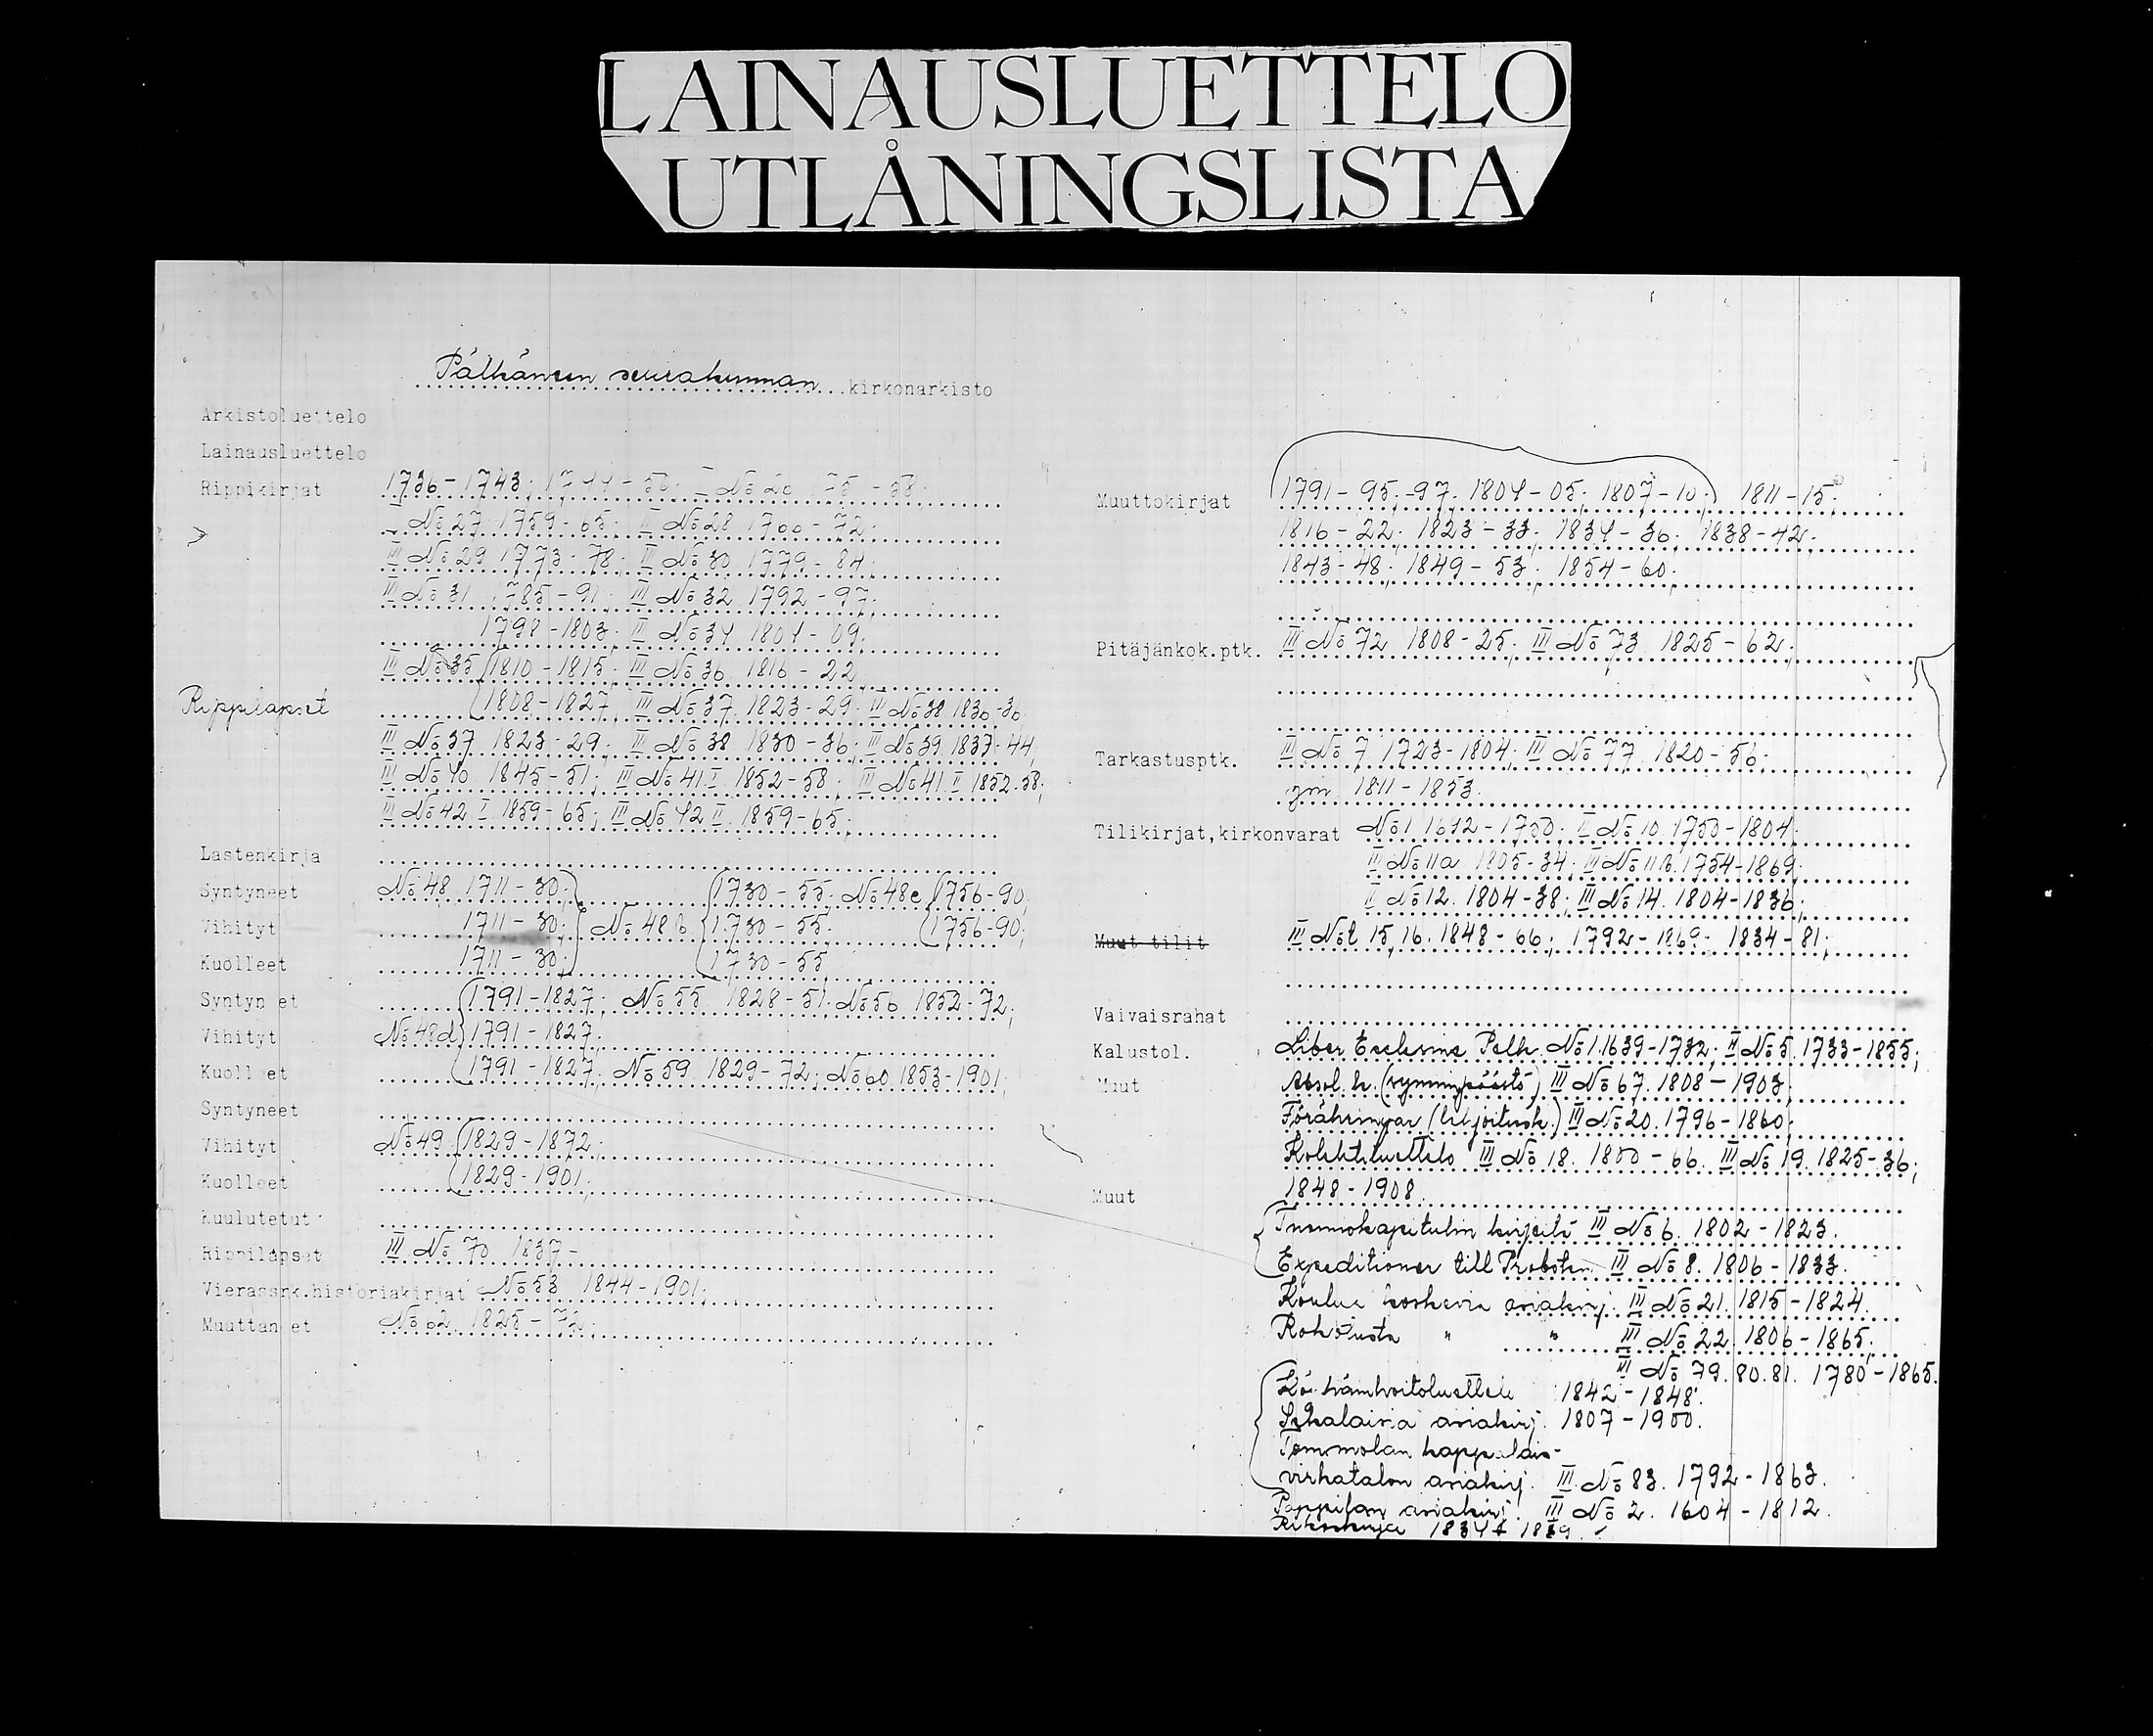 LAINAUSLUETTELO
UTLÅNINGSLISTA
Pälkäneen seurakunnan kirkonarkisto
Arkistoluettelo
Lainausluettelo
Rippikirjat 1736-1743;
No 27 1759-65; II No 28 1766-72;
III No 29 1773-78; III No 30 1779-84;
III No 31 1785-91; III No 32 1792-97;
1798-1803; III No 34 1804-09;
III No 35 1810-1815; III No 36 1816-22
Rippilapset 1808-1827; III No 37. 1823-29; III No 38. 1830-36
III No 37 1823-29; III No 38 1830-36; III No 39. 1837-44;
III No 40 1845-51; III No 41.I. 1852-58; III No 41.I 1852-58;
III No 42 I. 1859-65; III No 42 II. 1859-65;
Lastenkirja
Syntyneet No 48 1711-30; 1730-55; No 48c 1756-90;
Vihityt 1711-30; No 48b. 1730-55. 1756-90;
Kuolleet 1711-30; 1730-55
Syntyneet 1791-1827; No 55 1828-51; No 56 1852-72;
Vihityt No 48d 1791-1827;
Kuolleet 1791-1827; No 59 1829-72; No 60 1853-1901;
Syntyneet
Vihityt No 49 1829-1872;
Kuolleet 1829-1901;
Kuulutetut
Rippilapset III No 70 1837-
Vierassrk.historiakirjat No 53 1844-1901;
Muuttaneet No 62. 1825-72;
Muuttokirjat 1791-95; -97; 1804-05; 1807-10; 1811-15;
1816-22; 1823-33; 1834-36; 1838-42;
1843-48; 1849-53; 1854-60;
Pitäjänkok.ptk. III No 72 1808-25; III No 73 1825-62;
Tarkastusptk. II No 7 1723-1804; III No 77 1820-56;
ym 1811-1853.
Tilikirjat,kirkonvarat No 1. 1692-1750; II No 10. 1750-1804;
II No 11a 1805-34; II No 11b. 1754-1869;
II No 12. 1804-38; III No 14. 1804-1836;
Muut tilit III No:t 15, 16. 1848-66; 1792-1869; 1834-81;
Vaivaisrahat
Kalustol. Liber Ecclesiae Pelk. No 1. 1639-1732; II No 5. 1733-1855;
Muut Absol. k. (synninpäästö) III No 67. 1808-1903;
Föräringar (lahjoitusk.) III No 20. 1796-1860;
Kolehtiluettelo III No 18. 1800-66. III No 19. 1825-36;
Muut 1848-1908.
Tuomiokapitulin kirjeitä III No 6. 1802-1823.
Expeditioner till Probsten III No 8. 1806-1833.
Koulua koskevia asiakirj. III No 21. 1815-1824.
Rokotusta " " III No 22. 1806-1865;
III No 79. 80. 81. 1780-1865.
1842-1848.
Sekalaisia asiakirj. 1807-1900.
Tommolan kappalais-
virkatalon asiakirj. III No 83. 1792-1863.
Pappilan asiakirj. III No 2. 1604-1812.
Rikoskirja